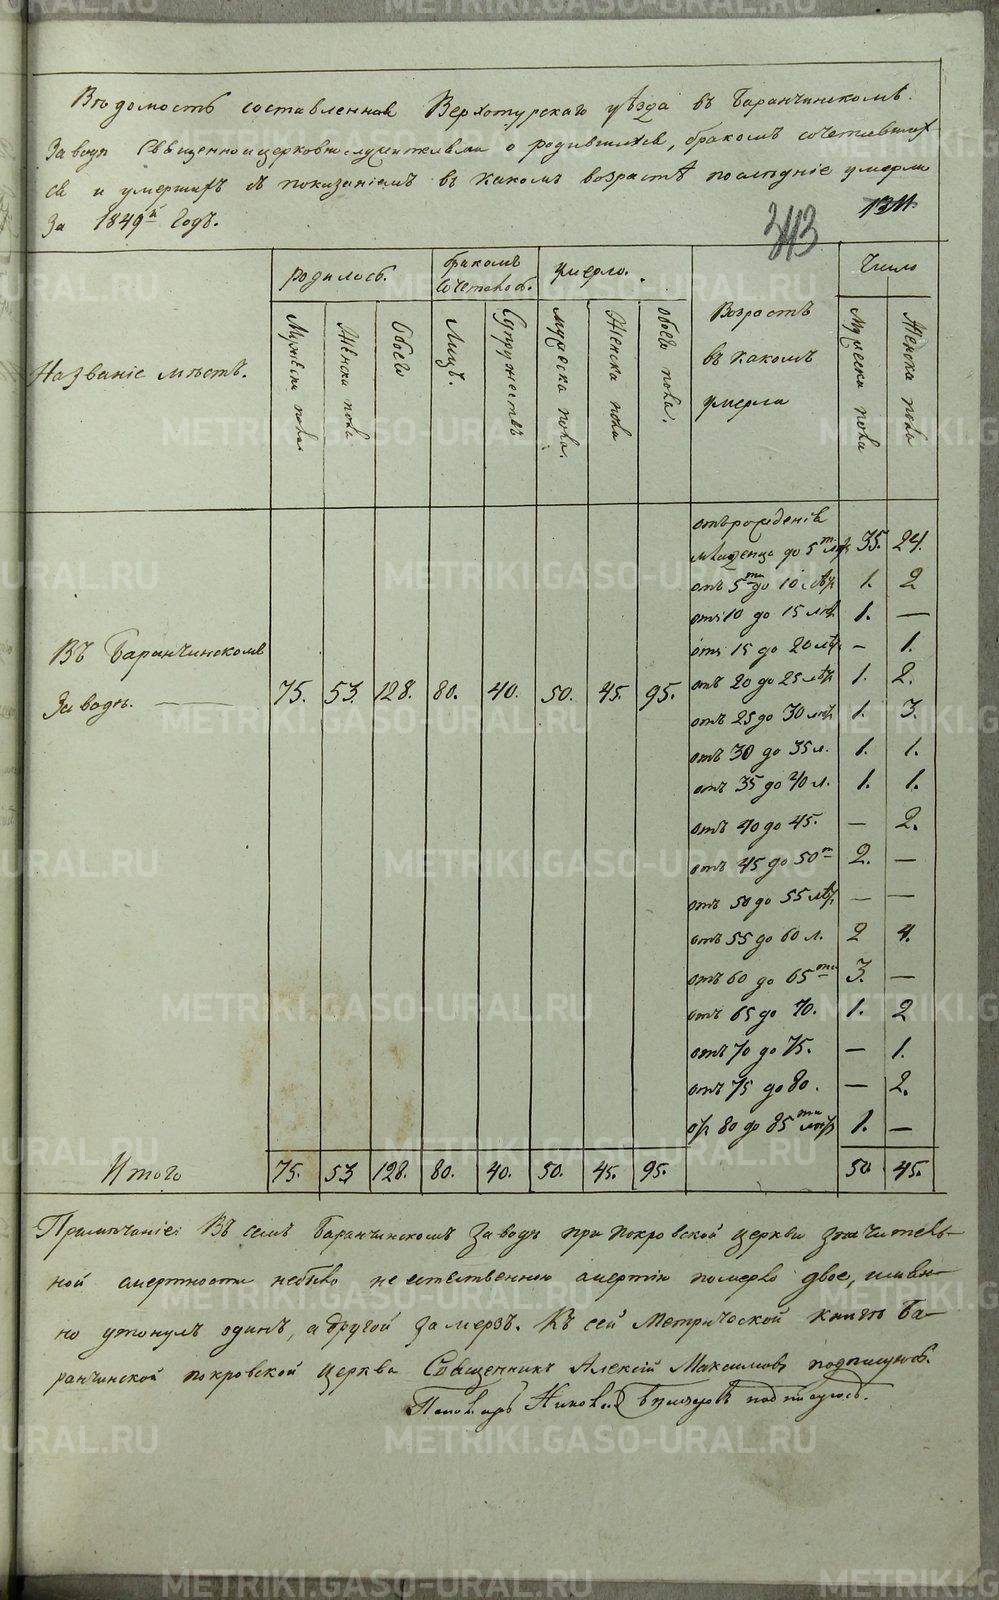 Вѣдомость составленная Верхотурскаго уѣзда въ Баранчинскомъ
Заводѣ Священноицерковнослужителями о родившихся, бракомъ сочетавших
ся и умершихъ съ показаніемъ въ какомъ возрастѣ послѣдніе умерли
За 1849й Годъ.
1311.
313
Названіе мѣстъ.
родилось.
бракомъ
сочеталось.
умерло.
Возрастъ
въ какомъ
умерли
Число
Мужеска пола.
Женска пола
Обоего
Лицъ.
Супружествъ
мужеска пола.
Женска пола
обоего пола.
Мужеска пола
Женска пола
отъ рожденія
младенца до 5ти лѣтъ 35. 24.
отъ 5ти до 10 лѣтъ 1. 2
отъ 10 до 15 лѣтъ 1. —
отъ 15 до 20 лѣтъ — 1.
отъ 20 до 25 лѣтъ 1. 2.
отъ 25 до 30 лѣтъ 1. 3.
отъ 30 до 35 л. 1. 1.
отъ 35 до 40 л. 1. 1.
отъ 40 до 45. — 2.
отъ 45 до 50ти 2. —
отъ 50 до 55 лѣтъ — —
отъ 55 до 60 л. 2 4.
отъ 60 до 65ти 3. —
отъ 65 до 70. 1. 2
отъ 70 до 75. — 1.
отъ 75 до 80. — 2.
отъ 80 до 85ти лѣтъ 1. —
Въ Баранчинскомъ
Заводѣ. — 75. 53. 128. 80. 40. 50. 45. 95.
Итого 75. 53 128. 80. 40. 50. 45. 95. 50 45.
Примѣчаніе: Въ семъ Баранчинскомъ заводѣ при покровской церкви значитель-
ной смертности небыло неестественною смертію померло двое, имян-
но утонулъ одинъ, а другой замерзъ. Къ сей Метрической книгѣ Ба-
ранчинской покровской церкви Священникъ Алексій Максимовъ подписуюсь.
Пономарь подписуюсь.
METRIKI.GASO-URAL.RU